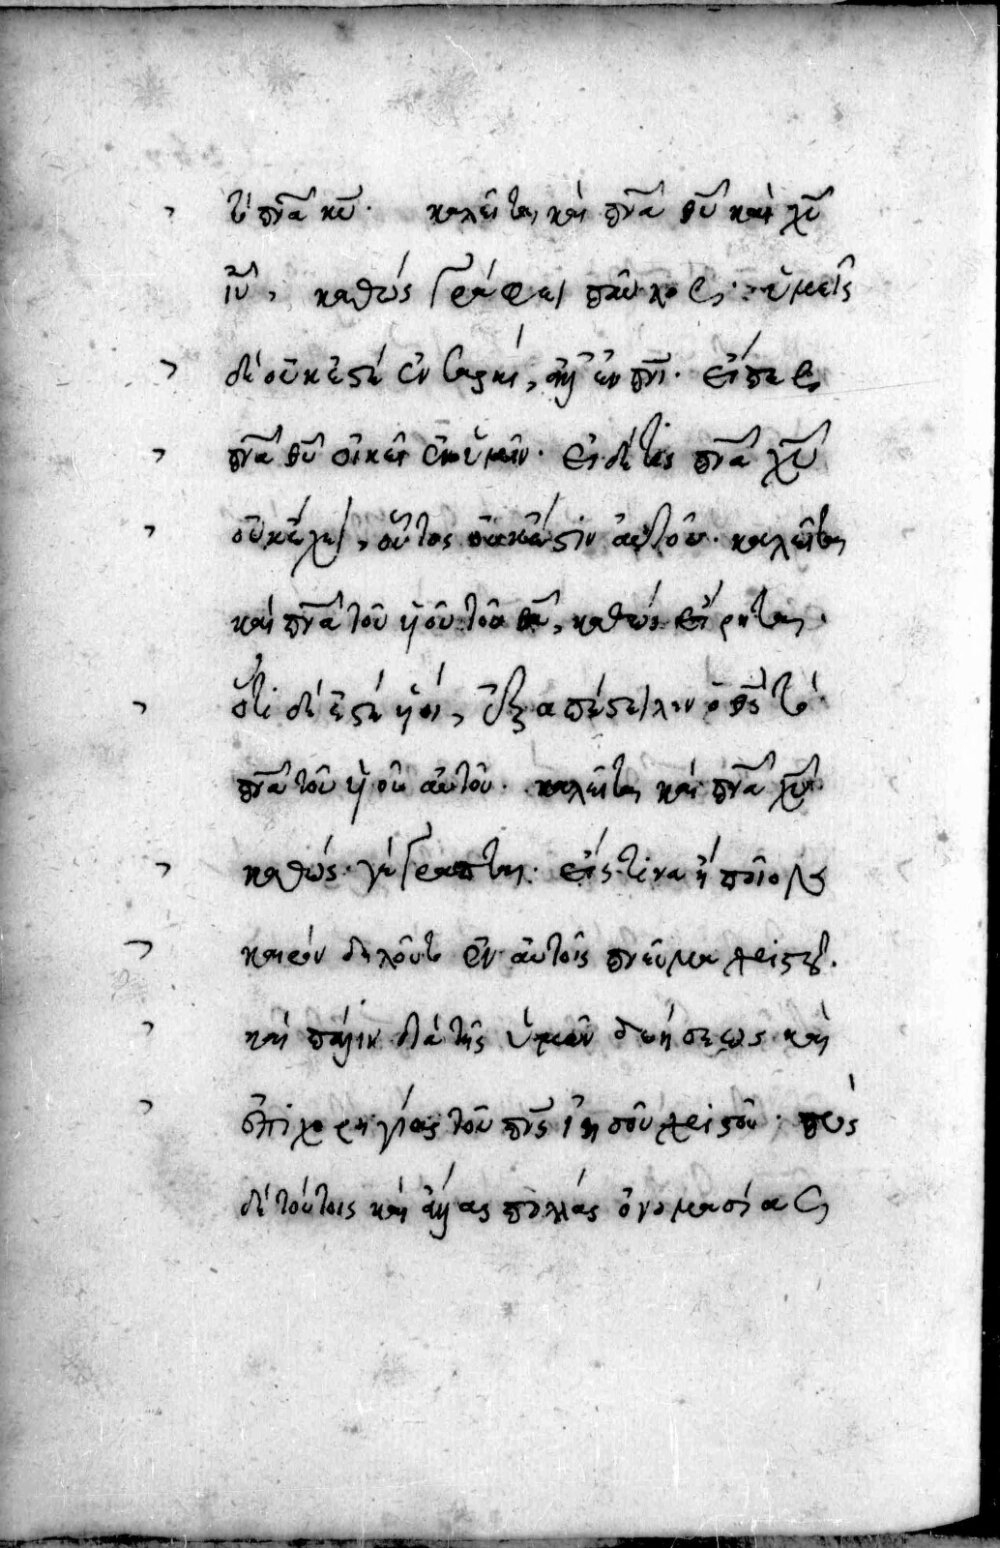 τὸ πνα κυ. καλεῖται καὶ πνα θυ καὶ χυ
ιυ, καθὼς γράφει παῦλος. ὑμεῖς
δὲ οὐκ ἐστὲ ἐν σαρκὶ, ἀλλ' ἐν πνι. εἴπερ
πνα θυ οἰκεῖ ἐν ὑμῖν. εἰ δέ τις πνα χυ
οὐκ ἔχει, οὗτος οὐκ ἔστιν αὐτοῦ. καλεῖται
καὶ πνα τοῦ ὑοῦ τοῦ θυ, καθὼς εἴρηται.
ὅτι δέ ἐστε ὑοί, ἐξαπέστειλεν ὁ θς τὸ
πνα τοῦ ὑοῦ αὐτοῦ. καλεῖται καὶ πνα χυ
καθὼς γέγραπται. εἰς τίνα ἢ ποῖον
καιρὸν δηλοῦτο ἐν αὐτοῖς πνεῦμα χριστοῦ.
καὶ πάλιν διὰ τῆς ὑμῶν δεήσεως καὶ
ἐπιχορηγίας τοῦ πνς ἰησοῦ χριστοῦ. πρὸς
δὲ τούτοις καὶ ἄλλας πολλὰς ὀνομασίας